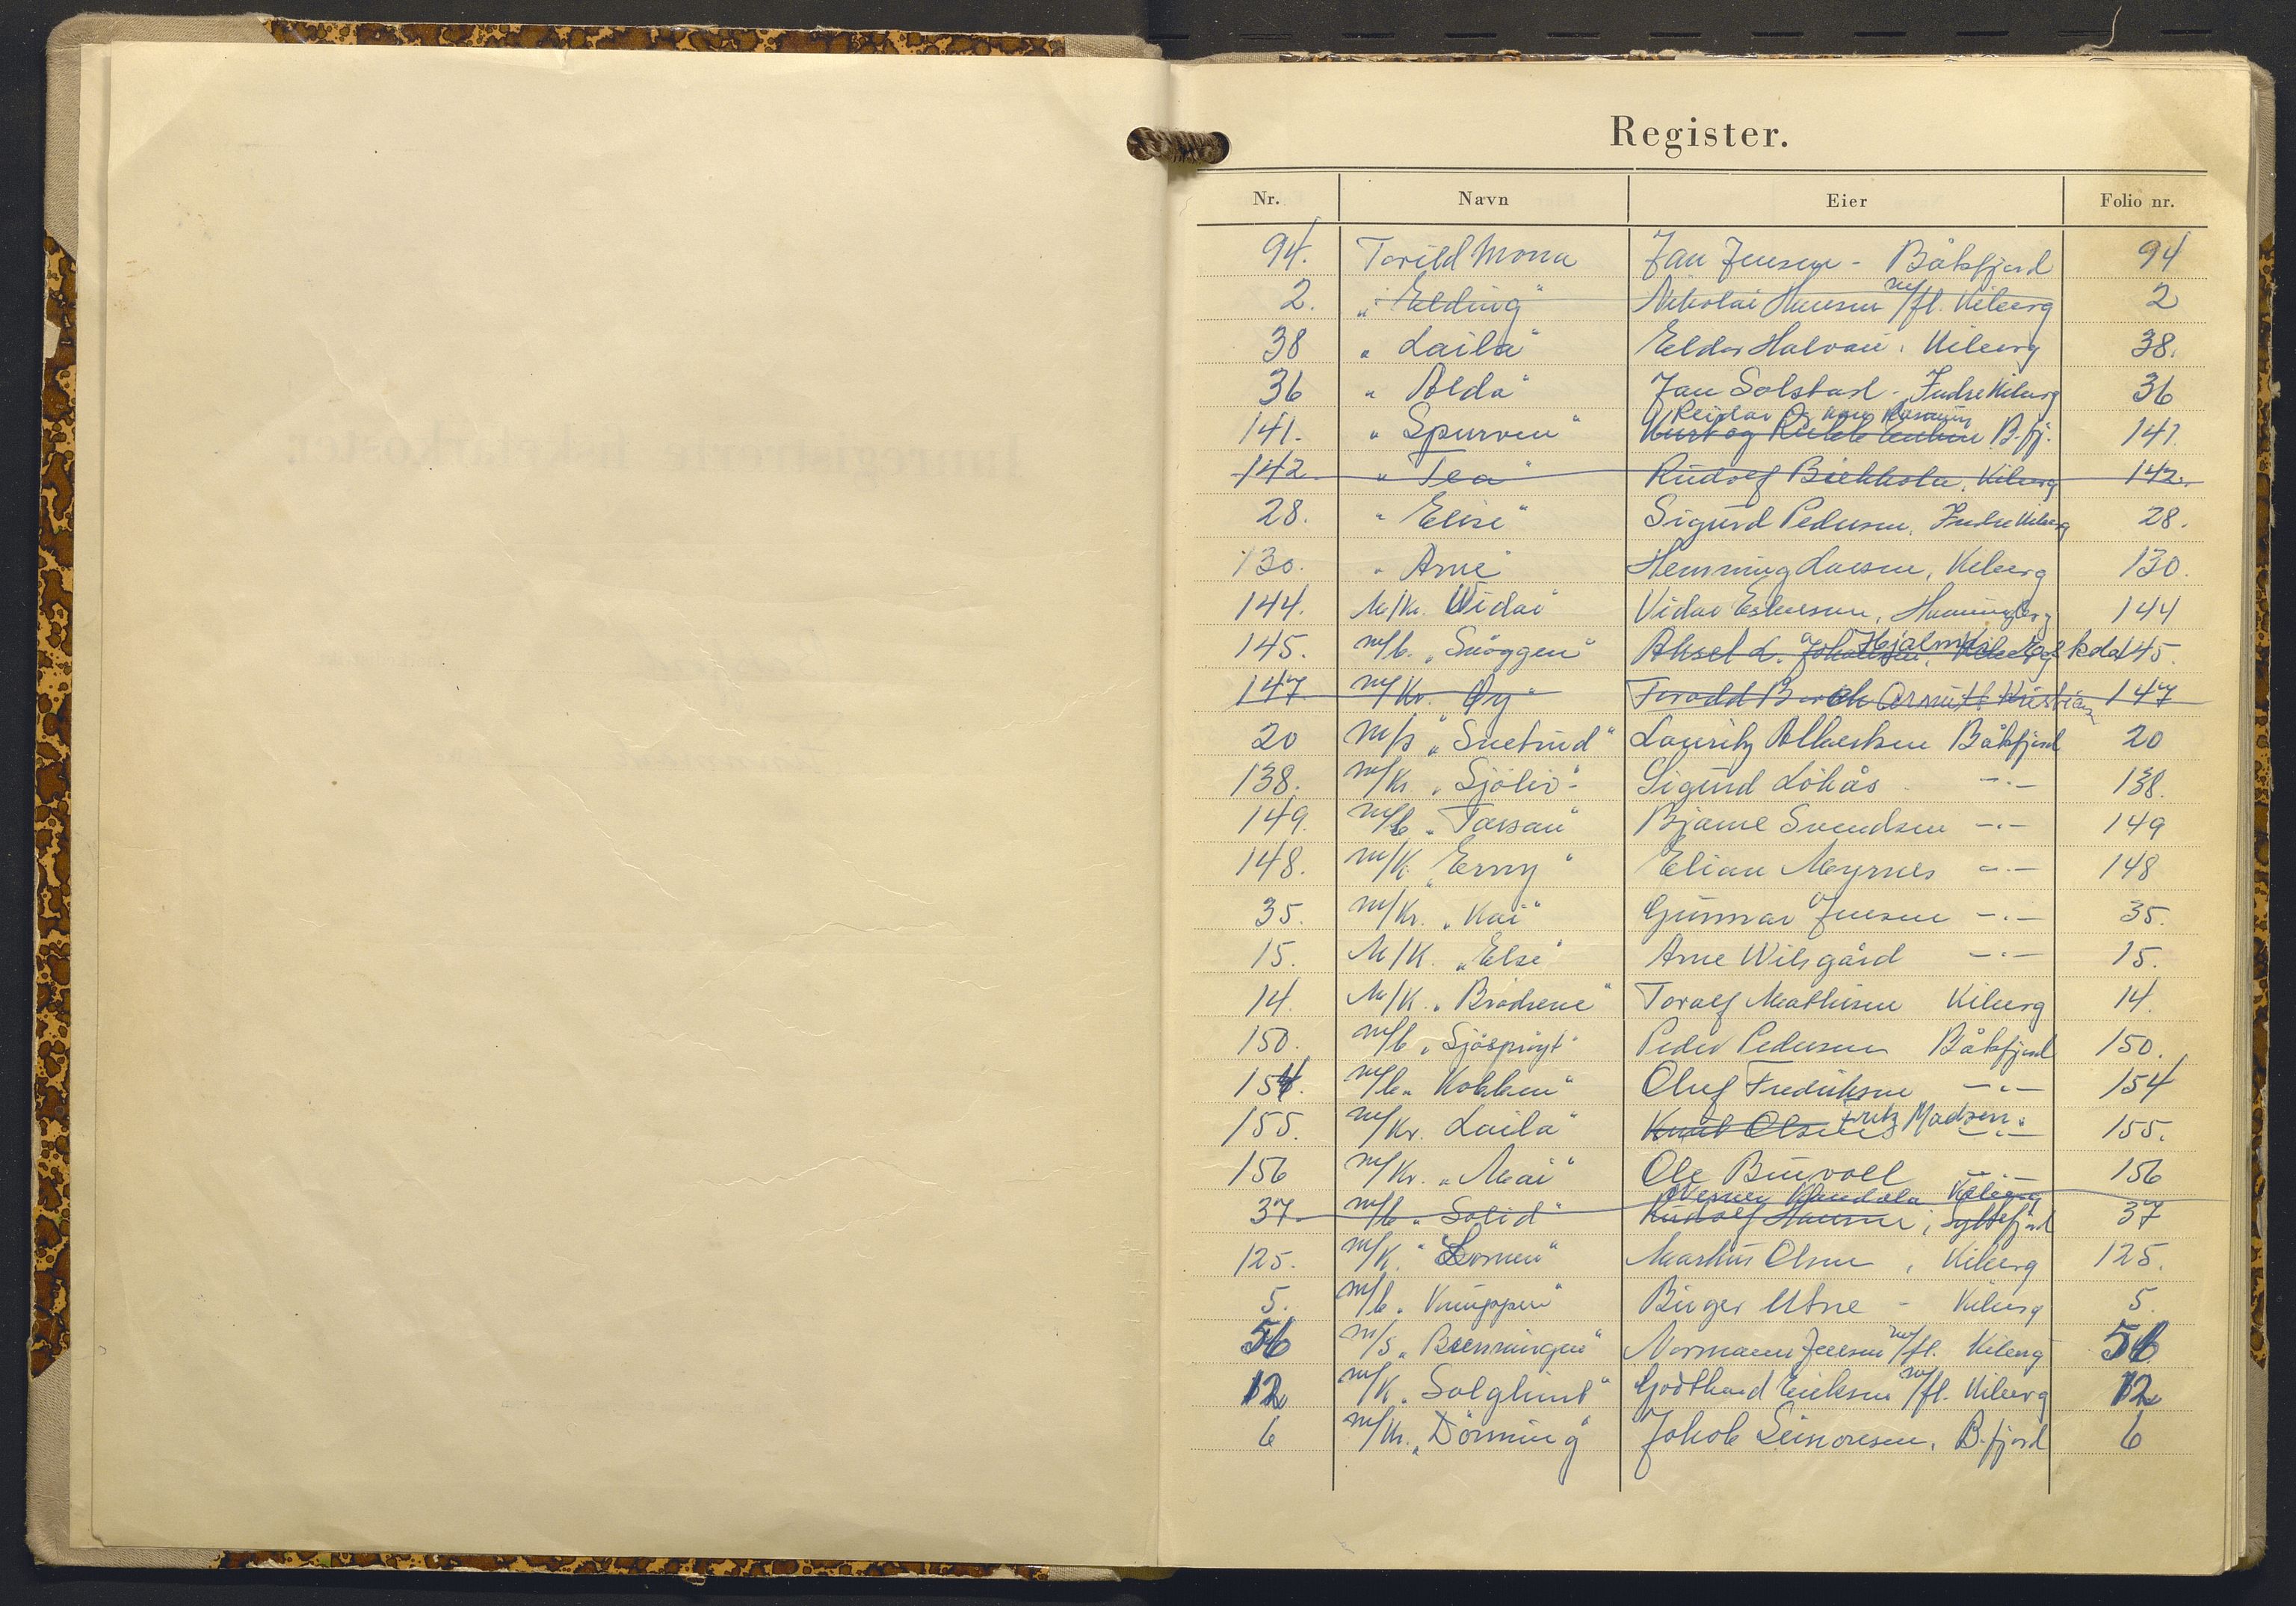 Register.
Nr. Navn Eier Folio nr.
94. Torild Mona Jan Jensen - Båtsfjord 94
2. „Elding“ Nikolai Hansen m/fl. Kiberg 2
38 „Laila“ Eldor Halvari, Kiberg 38.
36 „Alda“ Jan Solstad - Indre Kiberg 36
Reidar
141. „Spurven“ Kurt og B.fj. 141.
142. „Tea“ Rudolf Kiberg 142.
28. „Elise“ Sigurd Pedersen, Indre Kiberg 28.
130. „Arne“ Hemming Larsen, Kiberg 130.
144. M/Kr. Vidar“ Vidar Hamningberg 144
Hjalmar
145. m/b. „Snöggen“ Aksel L. Johansen, Kiberg 145.
147 m/Kr. 147
20 m/s „Snetind“ Lauritz Albertsen Båtsfjord 20
138. m/Kr. „Sjöliv“ Sigurd Lökås -"- 138.
149. m/b „Tarsan“ Bjarne Svendsen -"- 149
148. m/K. „Erny“ Elian Myrnes -"- 148
35. m/Kr. „Kai“ Gunnar Jensen -"- 35.
15. M/K. „Else“ Arne Wilsgård -"- 15.
14. M/K. „Brödrene“ Toralf Mathisen Kiberg 14.
150. m/b „Sjöspröyt“ Peder Pedersen Båtsfjord 150.
154. m/b „Kobben“ Oluf Fredriksen -"- 154
155. m/Kr. Laila“ Knut Olsen Fritz Madsen. -"- 155.
156 m/Kr. „Mai“ Ole Burvoll -"- 156
Werner Kiberg
37. m/b „Solid“ Rudolf Hansen, Syltefjord 37
125. m/K. „Lomen“ Markus Olsen, Kiberg 125.
5. m/b. „Knuppen“ Birger Utne - Kiberg 5.
56 m/s „Brenningen“ Normann Jensen m/fl. Kiberg 56
12 m/K. „Solglimt“ Godthard Eriksen m/fl. Kiberg 12
6 m/Kr. „Dönning“ Jakob B.fjord 6